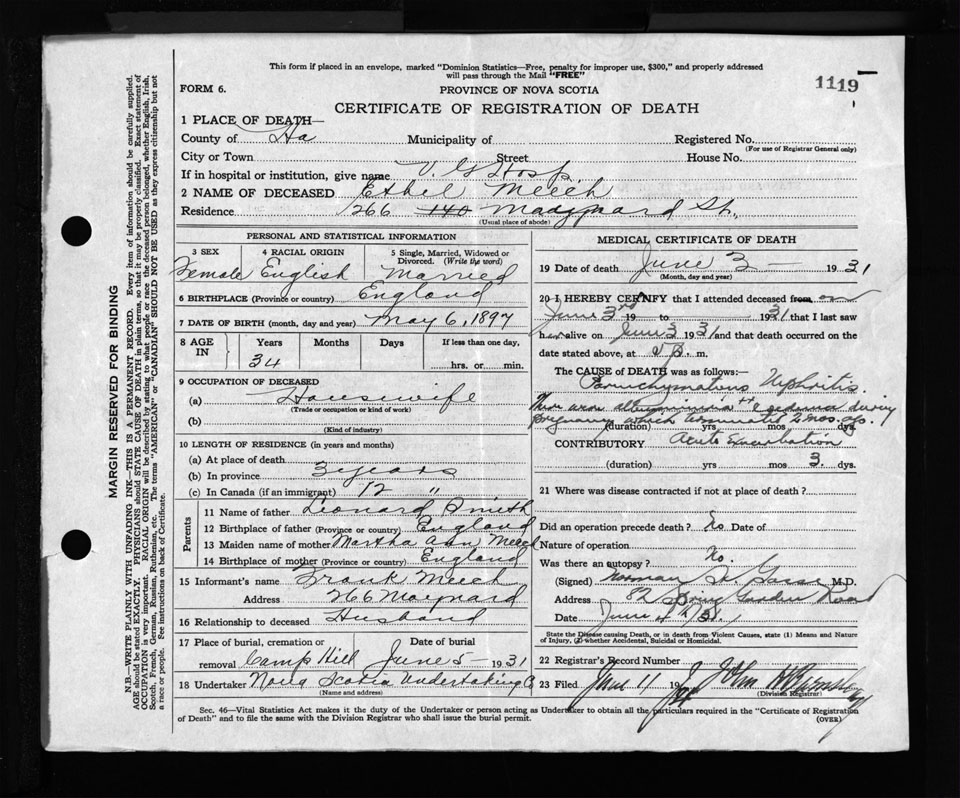 This form if placed in an envelope, marked "Dominion Statistics—Free, penalty for improper use, $300," and properly addressed
will pass through the Mail "FREE"
1119
FORM 6.
PROVINCE OF NOVA SCOTIA
CERTIFICATE OF REGISTRATION OF DEATH
1 PLACE OF DEATH—
County of Ha Municipality of Registered No.
(For use of Registrar General only)
City or Town Street House No.
If in hospital or institution, give name V. G Hosp.
2 NAME OF DECEASED Ethel Meech
Residence 266 140 Maaynard St.,
(Usual place of abode)
PERSONAL AND STATISTICAL INFORMATION
3 SEX 4 RACIAL ORIGIN 5 Single, Married, Widowed or
Divorced. (Write the word)
Female English Married
6 BIRTHPLACE (Province or country) England
7 DATE OF BIRTH (month, day and year) May 6, 1897
8 AGE IN Years Months Days If less than one day,
34 hrs. or min.
9 OCCUPATION OF DECEASED
(a) Housewife
(Trade or occupation or kind of work)
(b)
(Kind of industry)
10 LENGTH OF RESIDENCE (in years and months)
(a) At place of death
(b) In province 3 years
(c) In Canada (if an immigrant) 12 "
Parents
11 Name of father Leonard Smith
12 Birthplace of father (Province or country) England
13 Maiden name of mother Martha Ann Meech
14 Birthplace of mother (Province or country) England
15 Informant's name Frank Meech
Address 266 Maynard
16 Relationship to deceased Husband
17 Place of burial, cremation or Date of burial
removal Camp Hill June 5- 1931
18 Undertaker Nova Scotia Undertaking Co
(Name and address)
MEDICAL CERTIFICATE OF DEATH
19 Date of death June 3 — 1931
(Month, day and year)
20 I HEREBY CERTIFY that I attended deceased from on
June 3rd 19 to 1931 that I last saw
h alive on June 3 1931 and that death occurred on the
date stated above, at m.
The CAUSE of DEATH was as follows:—
Parenchymatous Nephritis.
There were albuminuria ++ & oedema during
pregnancy which terminated 2 mos. ago.
(duration) yrs mos dys.
CONTRIBUTORY Acute Exacerbation
(duration) yrs mos 3. dys.
21 Where was disease contracted if not at place of death?
Did an operation precede death? No Date of
Nature of operation
Was there an autopsy? No.
(Signed) Norman M.D.
Address 82 Spring Garden Road
Date June 4/31.
State the Disease causing Death, or in death from Violent Causes, state (1) Means and Nature
of Injury, (2) whether Accidental, Suicidal or Homicidal.
22 Registrar's Record Number
23 Filed June 11 19 John
(Division Registrar)
Sec. 46—Vital Statistics Act makes it the duty of the Undertaker or person acting as Undertaker to obtain all the particulars required in the "Certificate of Registration
of Death" and to file the same with the Division Registrar who shall issue the burial permit.
(OVER)
MARGIN RESERVED FOR BINDING
N.B.—WRITE PLAINLY WITH UNFADING INK—THIS IS A PERMANENT RECORD. Every item of information should be carefully supplied.
AGE should be stated EXACTLY. PHYSICIANS should STATE CAUSE OF DEATH in plain terms, so that it may be properly classified. Exact statement of
OCCUPATION is very important. RACIAL ORIGIN will be described by stating to what people or race the deceased person belonged, whether English, Irish,
Scotch, French, German, Russian, Ruthenian, etc. The terms "AMERICAN" or "CANADIAN" SHOULD NOT BE USED as they express citizenship but not
a race or people. See instructions on back of Certificate.